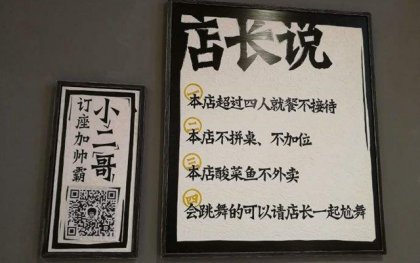 小二哥
订座加帅霸
店长说
一 本店超过四人就餐不接待
二 本店不拼桌、不加位
三 本店酸菜鱼不外卖
四 会跳舞的可以请店长一起尬舞